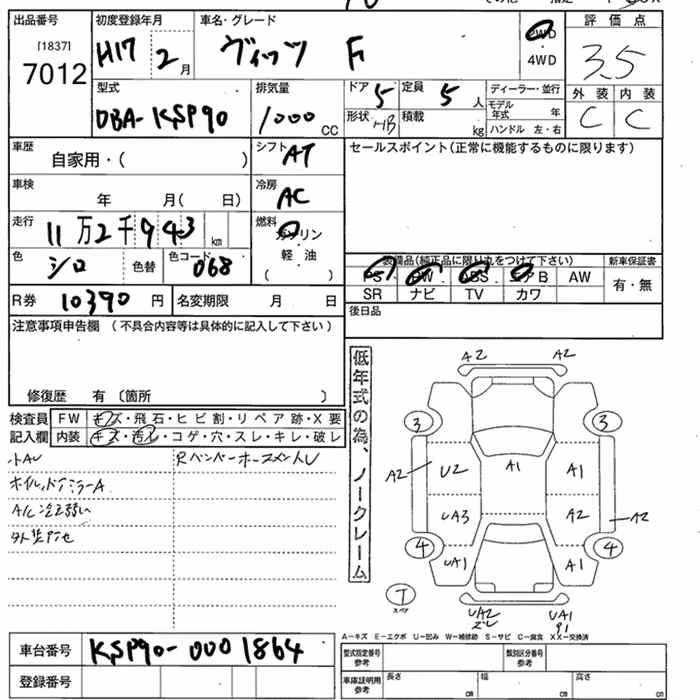 出品番号
[1837]
7012
初度登録年月
H17 2月
車名・グレード
ヴィッツ F
2WD
4WD
評価点
3.5
外装 内装
C C
型式
DBA-KSP90
排気量
1000 CC
ドア 5
定員 5人
形状 HB
積載 kg
ディーラー・並行
モデル年式 年
ハンドル 左・右
車歴
自家用・( )
シフト AT
セールスポイント(正常に機能するものに限ります)
車検
年 月( 日)
冷房 AC
走行
11万2千943 km
燃料
ガソリン
軽油
( )
色
シロ
色替
色コード
068
装備品(純正品に限り丸をつけて下さい)
新車保証書
PS PW ABS エアB AW
SR ナビ TV カワ
有・無
R券 10390円
名変期限 月 日
後日品
注意事項申告欄(不具合内容等は具体的に記入して下さい)
修復歴 有(箇所 )
検査員記入欄
FW キズ・飛石・ヒビ割・リペア跡・X要
内装 キズ・汚レ・コゲ・穴・スレ・キレ・破レ
小AU
Rバンパーホースメント U
ホイル,ドアミラーA
A/C 冷え弱い
外装色セ
低年式の為、ノークレーム
A2 A2
3 3
A2 U2 A1 A1
UA3 A2 A2
4 4
UA1 A1
T
スペア
UA2 UA1
A−キズ E−エクボ U−凹み W−補修跡 S−サビ C−腐食 XX−交換済
車台番号
KSP90-0001864
登録番号
型式指定番号
参考
類別区分番号
参考
車庫証明用
参考
長さ 幅 高さ